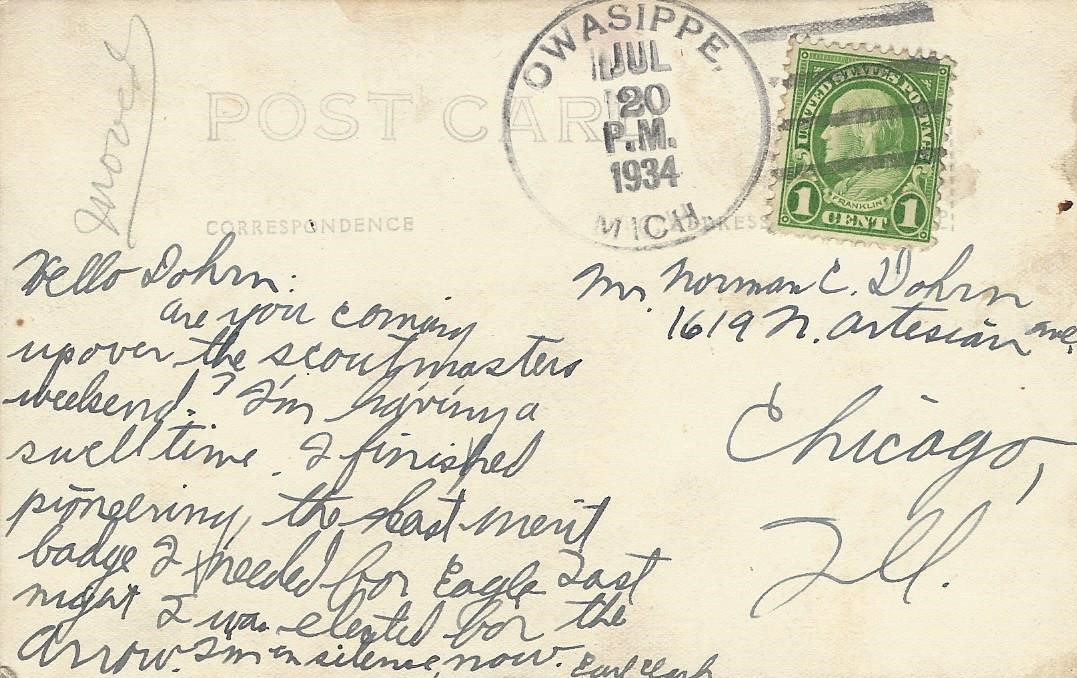 moved
POST CARD
OWASIPPE,
JUL
20
P.M.
1934
MICH
UNITED STATES POSTAGE
FRANKLIN
1 CENT 1
CORRESPONDENCE
ADDRESS
Hello Dohrn:
are you coming
up over the scoutmasters
weekend? I'm having a
swell time. I finished
pioneering, the last merit
badge I needed for Eagle Last
night I was elected for the
Arrow. I'm in silence, now. Earl Clark
Mr. Norman C. Dohrn
1619 N. Artesian ave.
Chicago,
Ill.